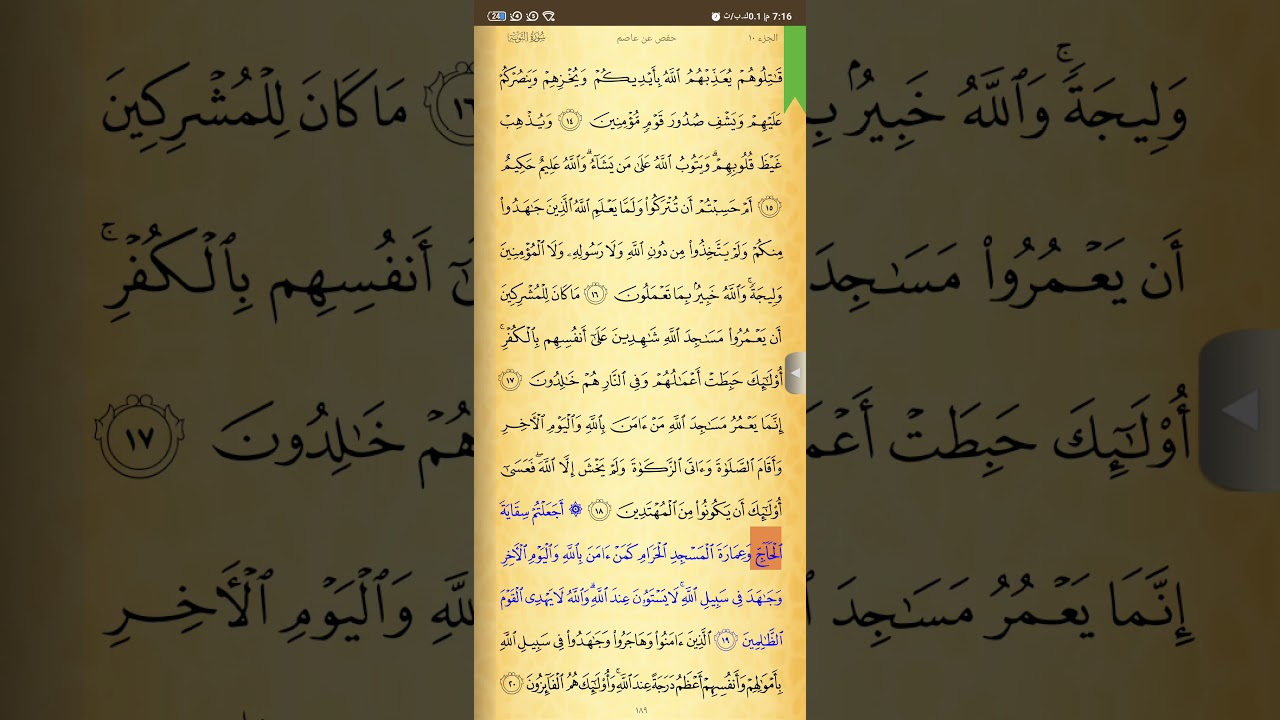 7:16 م | 0.1ك.ب/ث
24
الجزء ١٠
حفص عن عاصم
سُورَةُ التَّوۡبَةِ
قَٰتِلُوهُمۡ يُعَذِّبۡهُمُ ٱللَّهُ بِأَيۡدِيكُمۡ وَيُخۡزِهِمۡ وَيَنصُرۡكُمۡ
عَلَيۡهِمۡ وَيَشۡفِ صُدُورَ قَوۡمٖ مُّؤۡمِنِينَ ١٤ وَيُذۡهِبۡ
غَيۡظَ قُلُوبِهِمۡۗ وَيَتُوبُ ٱللَّهُ عَلَىٰ مَن يَشَآءُۗ وَٱللَّهُ عَلِيمٌ حَكِيمٌ
١٥ أَمۡ حَسِبۡتُمۡ أَن تُتۡرَكُواْ وَلَمَّا يَعۡلَمِ ٱللَّهُ ٱلَّذِينَ جَٰهَدُواْ
مِنكُمۡ وَلَمۡ يَتَّخِذُواْ مِن دُونِ ٱللَّهِ وَلَا رَسُولِهِۦ وَلَا ٱلۡمُؤۡمِنِينَ
وَلِيجَةٗۚ وَٱللَّهُ خَبِيرُۢ بِمَا تَعۡمَلُونَ ١٦ مَا كَانَ لِلۡمُشۡرِكِينَ
أَن يَعۡمُرُواْ مَسَٰجِدَ ٱللَّهِ شَٰهِدِينَ عَلَىٰٓ أَنفُسِهِم بِٱلۡكُفۡرِۚ
أُوْلَٰٓئِكَ حَبِطَتۡ أَعۡمَٰلُهُمۡ وَفِي ٱلنَّارِ هُمۡ خَٰلِدُونَ ١٧
إِنَّمَا يَعۡمُرُ مَسَٰجِدَ ٱللَّهِ مَنۡ ءَامَنَ بِٱللَّهِ وَٱلۡيَوۡمِ ٱلۡأٓخِرِ
وَأَقَامَ ٱلصَّلَوٰةَ وَءَاتَى ٱلزَّكَوٰةَ وَلَمۡ يَخۡشَ إِلَّا ٱللَّهَۖ فَعَسَىٰٓ
أُوْلَٰٓئِكَ أَن يَكُونُواْ مِنَ ٱلۡمُهۡتَدِينَ ١٨ ۞ أَجَعَلۡتُمۡ سِقَايَةَ
ٱلۡحَآجِّ وَعِمَارَةَ ٱلۡمَسۡجِدِ ٱلۡحَرَامِ كَمَنۡ ءَامَنَ بِٱللَّهِ وَٱلۡيَوۡمِ ٱلۡأٓخِرِ
وَجَٰهَدَ فِي سَبِيلِ ٱللَّهِۚ لَا يَسۡتَوُۥنَ عِندَ ٱللَّهِۗ وَٱللَّهُ لَا يَهۡدِي ٱلۡقَوۡمَ
ٱلظَّٰلِمِينَ ١٩ ٱلَّذِينَ ءَامَنُواْ وَهَاجَرُواْ وَجَٰهَدُواْ فِي سَبِيلِ ٱللَّهِ
بِأَمۡوَٰلِهِمۡ وَأَنفُسِهِمۡ أَعۡظَمُ دَرَجَةً عِندَ ٱللَّهِۚ وَأُوْلَٰٓئِكَ هُمُ ٱلۡفَآئِزُونَ ٢٠
١٨٩